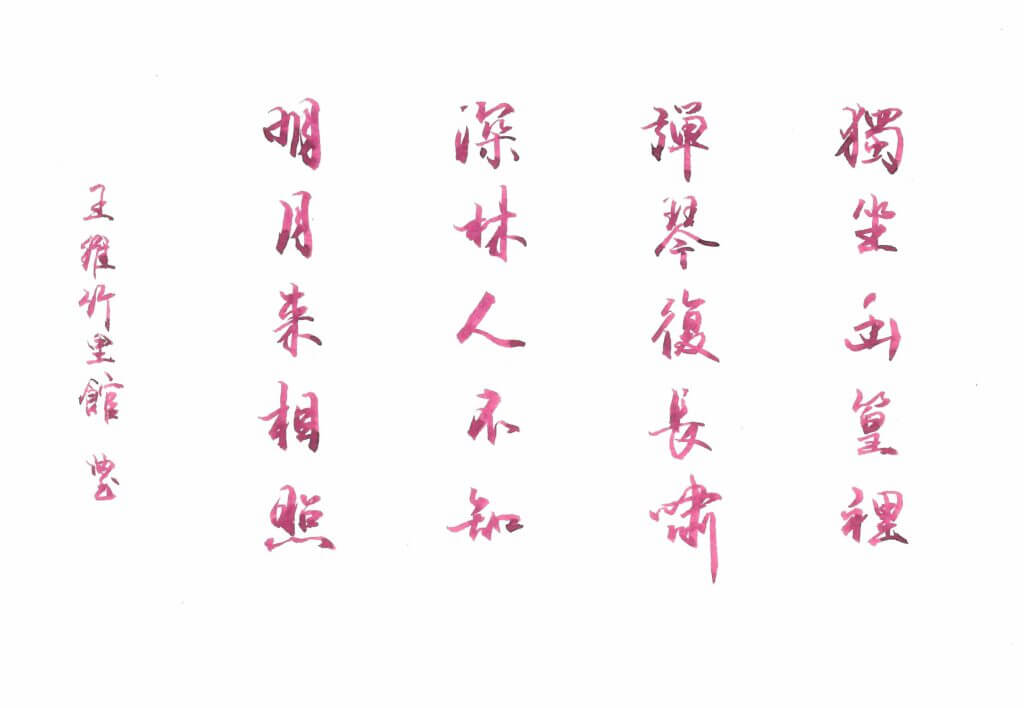 獨坐幽篁裡
彈琴復長嘯
深林人不知
明月来相照
王維竹里館